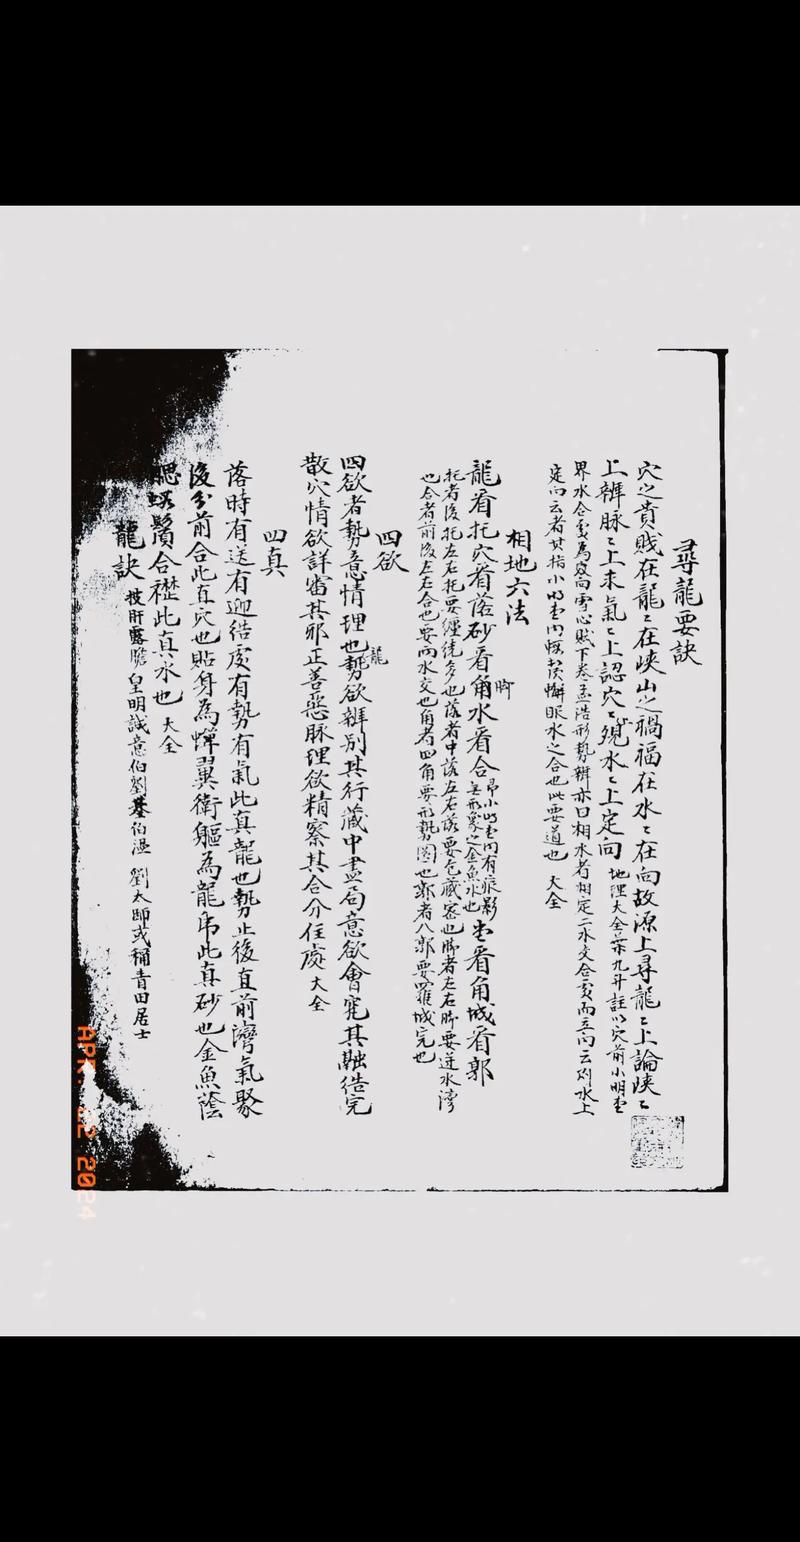 尋龍要訣
穴之貴賤在龍〻在峽山之禍福在水〻在向故源上尋龍〻上論峽〻
上辨脉〻上來氣〻上認穴〻水〻上定向 地理大全葉九升註以穴前小明堂
界水合處為向雪心賦下卷孟浩形勢辨亦曰相水者相定二水交合處而立向云則水上
定向云者其指小明堂内蝦鬚蠏眼水之合也此要道也 大全
相地六法
龍看托穴看落砂看脚水看合 昂小明堂内有痕影
無形象之金魚水也 堂看角城看郭
托者後托左右托要纏繞多也落者中落左右落要包藏密也脚者左右脚要逆水灣
也合者前後左右合也要向水交也角者四角要形勢圓也郭者八郭要羅城完也
四欲
四欲者勢意情理也龍勢欲辨別其行藏中盡局意欲會究其融結完
散穴情欲詳審其邪正善惡脉理欲精察其合分住處 大全
四真
落時有送有迎結處有勢有氣此真龍也勢止後直前灣氣聚
後分前合此真穴也貼身為蟬翼衛軀為龍虎此真砂也金魚蔭
腮蝦鬚合襟此真水也 大全
龍訣 披肝露膽 皇明誠意伯劉基伯溫 劉太師或稱青田居士
APR. 22 2024